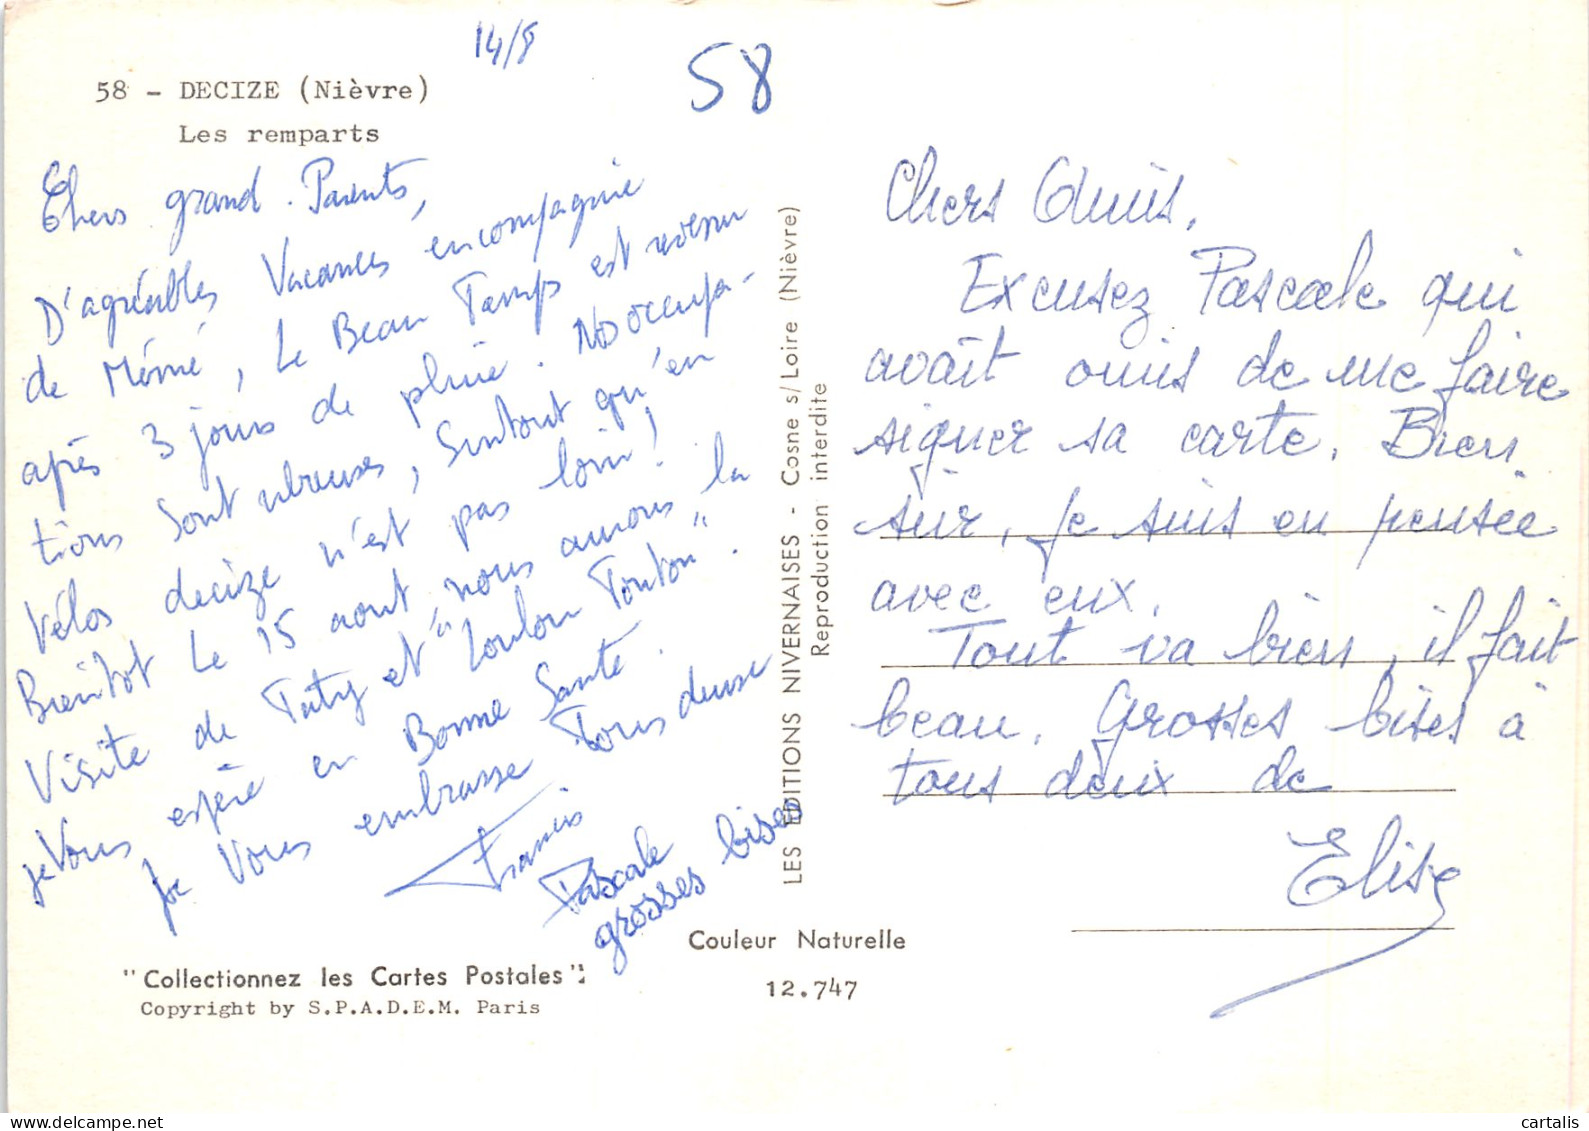 14/8
58
58 - DECIZE (Nièvre)
Les remparts
Chers grand-Parents,
D'agréables Vacances en compagnie
de Mémé, Le Beau Temps est revenu
après 3 jours de pluie. Nos occupa-
tions sont nbreuses, Surtout qu'en
Vélos decize n'est pas loin!
Bientôt Le 15 aout, nous aurons la
Visite de Taty et "Loulou Tonton".
je Vous espère en Bonne Santé.
Je Vous embrasse Tous deuse
Francis
Pascale
grosses bises
LES EDITIONS NIVERNAISES - Cosne s/Loire (Nièvre)
Reproduction interdite
Chers Amis,
Excusez Pascale qui
avait omis de me faire
signer sa carte. Bien
sûr, je suis en pensée
avec eux.
Tout va bien, il fait
beau. Grosses bises à
tous deux de
Elise
Couleur Naturelle
12.747
"Collectionnez les Cartes Postales":
Copyright by S.P.A.D.E.M. Paris
delcampe.net
cartalis